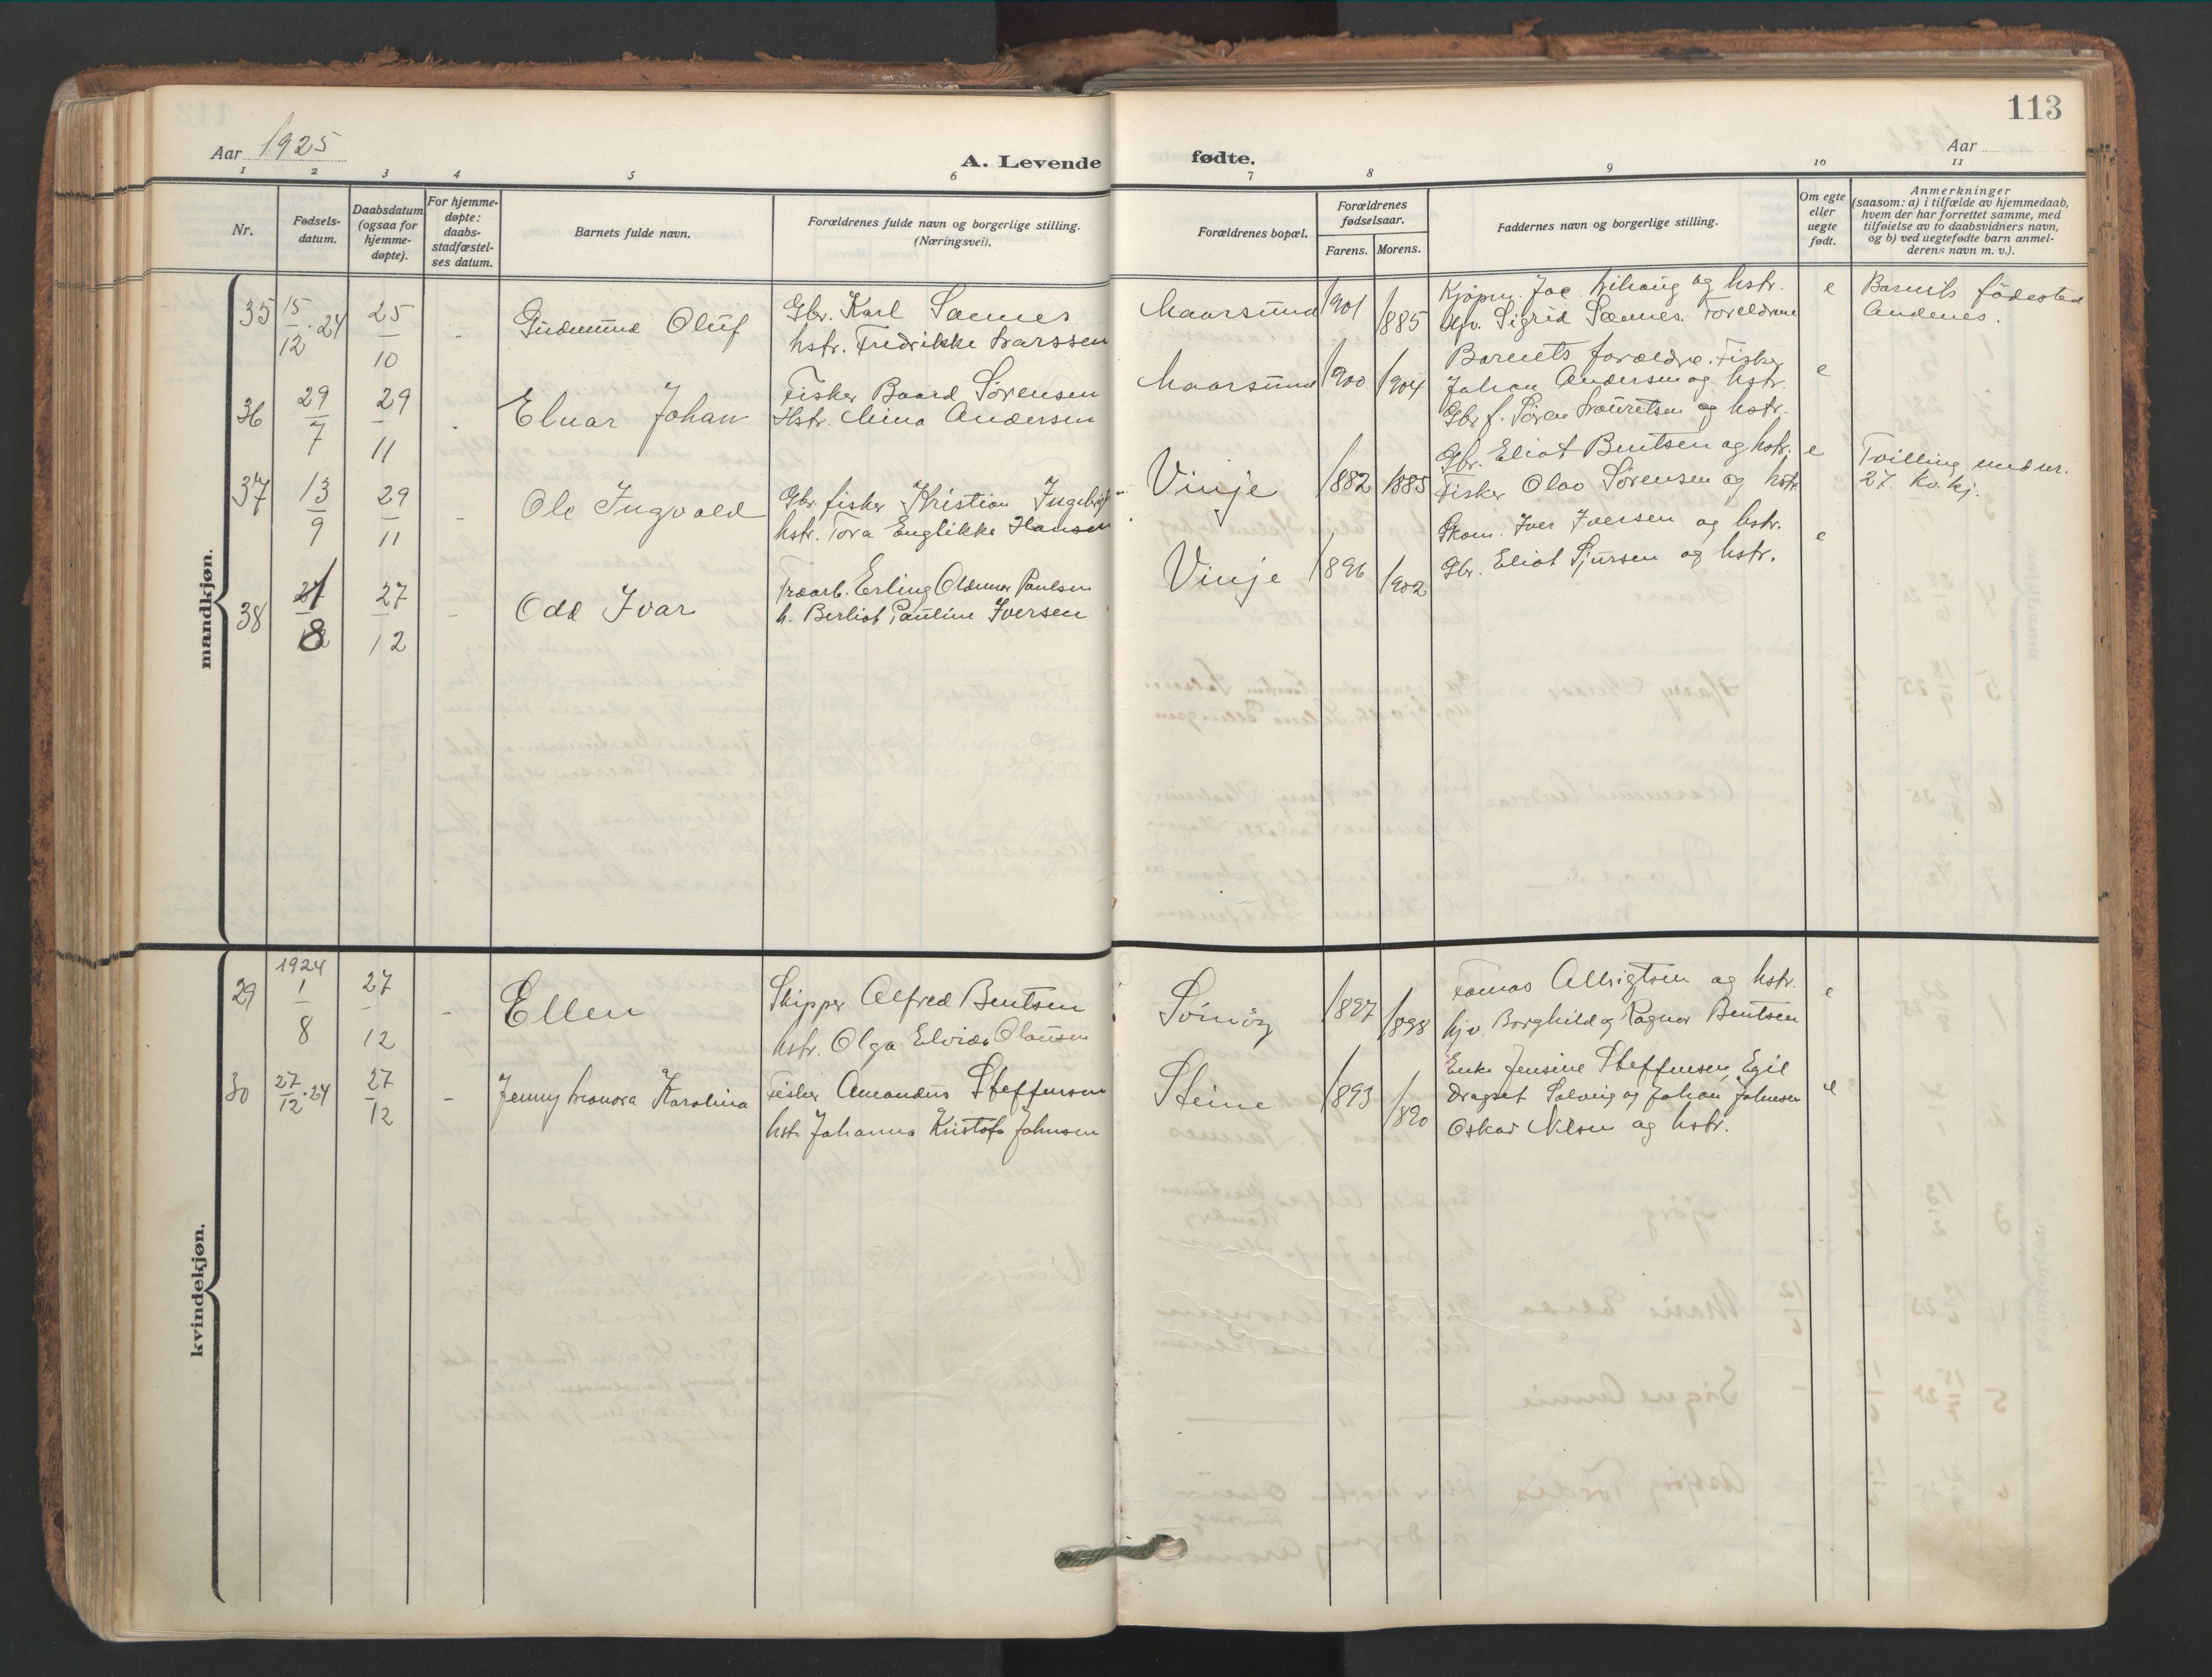 113
Aar 1925
A. Levende fødte.
Aar
1 2 3 4 5 6 7 8 9 10 11
Nr.
Fødsels-
datum.
Daabsdatum
(ogsaa for
hjemme-
døpte).
For hjemme-
døpte:
daabs-
stadfæstel-
ses datum.
Barnets fulde navn.
Forældrenes fulde navn og borgerlige stilling.
(Næringsvei).
Forældrenes bopæl.
Forældrenes
fødselsaar.
Farens. Morens.
Faddernes navn og borgerlige stilling.
Om egte
eller
uegte
født.
Anmerkninger
(saasom: a) i tilfælde av hjemmedaab,
hvem der har forrettet samme, med
tilføielse av to daabsvidners navn,
og b) ved uegtefødte barn anmel-
derens navn m. v.).
mandkjøn.
35 15/12.24 25/10 - Gudmund Oluf
Gbr. Karl Sannes
hstr. Fredrikke Larssen
Maarsund 1901 1885
og hstr.
Sigrid Sannes. Foreldrene
e
Barnets fødested
Andenes.
36 29/7 29/11 - Elnar Johan
Fisker Baard Sørensen
Hstr. Mina Andersen
Maarsund 1900 1904
Barnets forældre. Fisker
Johan Andersen og hstr.
Gbr. f. Søren Lauretsen og hstr.
e
37 13/9 29/11 - Ole Ingvald
Gbr. fisker Kristian
hstr. Tora Englikke Hansen
Vinje 1882 1885
Gbr. Eliot Bentsen og hstr.
Fisker Olav Sørensen og hstr.
e
Tvilling med nr.
27. kv. kj.
38 8 27/12 - Odd Ivar
Træarb. Erling Oldemar Paulsen
h. Berliot Pauline Iversen
Vinje 1896 1902
Skom. Iver Iversen og hstr.
Gbr. Eliot Sjursen og hstr.
e
kvindekjøn.
29 1924 1/8 27/12 - Ellen
Skipper Alfred Bentsen
hstr. Olga Elvida Olausen
1897 1898
Tomas Albrigtsen og hstr.
Borghild og Ragnar Bentsen
e
30 27/12.24 27/12 - Jenny Leonora Karolina
Fisker Amandus Steffensen
hstr. Johanna Kristofa Johnsen
Steine 1893 1890
Enke Jensine Steffensen, Egil
Dragset Solveig og Johan Johnsen
Oskar Nilsen og hstr.
e